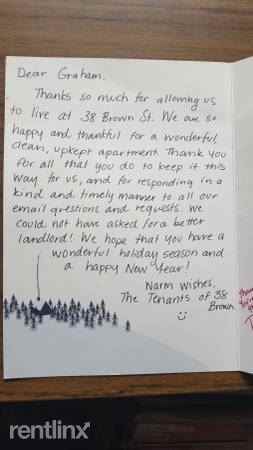 Dear Graham,
Thanks so much for allowing us
to live at 38 Brown St. We are so
happy and thankful for a wonderful,
clean, upkept apartment. Thank you
for all that you do to keep it this
way for us, and for responding in a
kind and timely manner to all our
email questions and requests. We
could not have asked for a better
landlord! We hope that you have a
wonderful holiday season and
a happy New Year!
Warm wishes,
The Tenants of 38
Brown
rentlinx